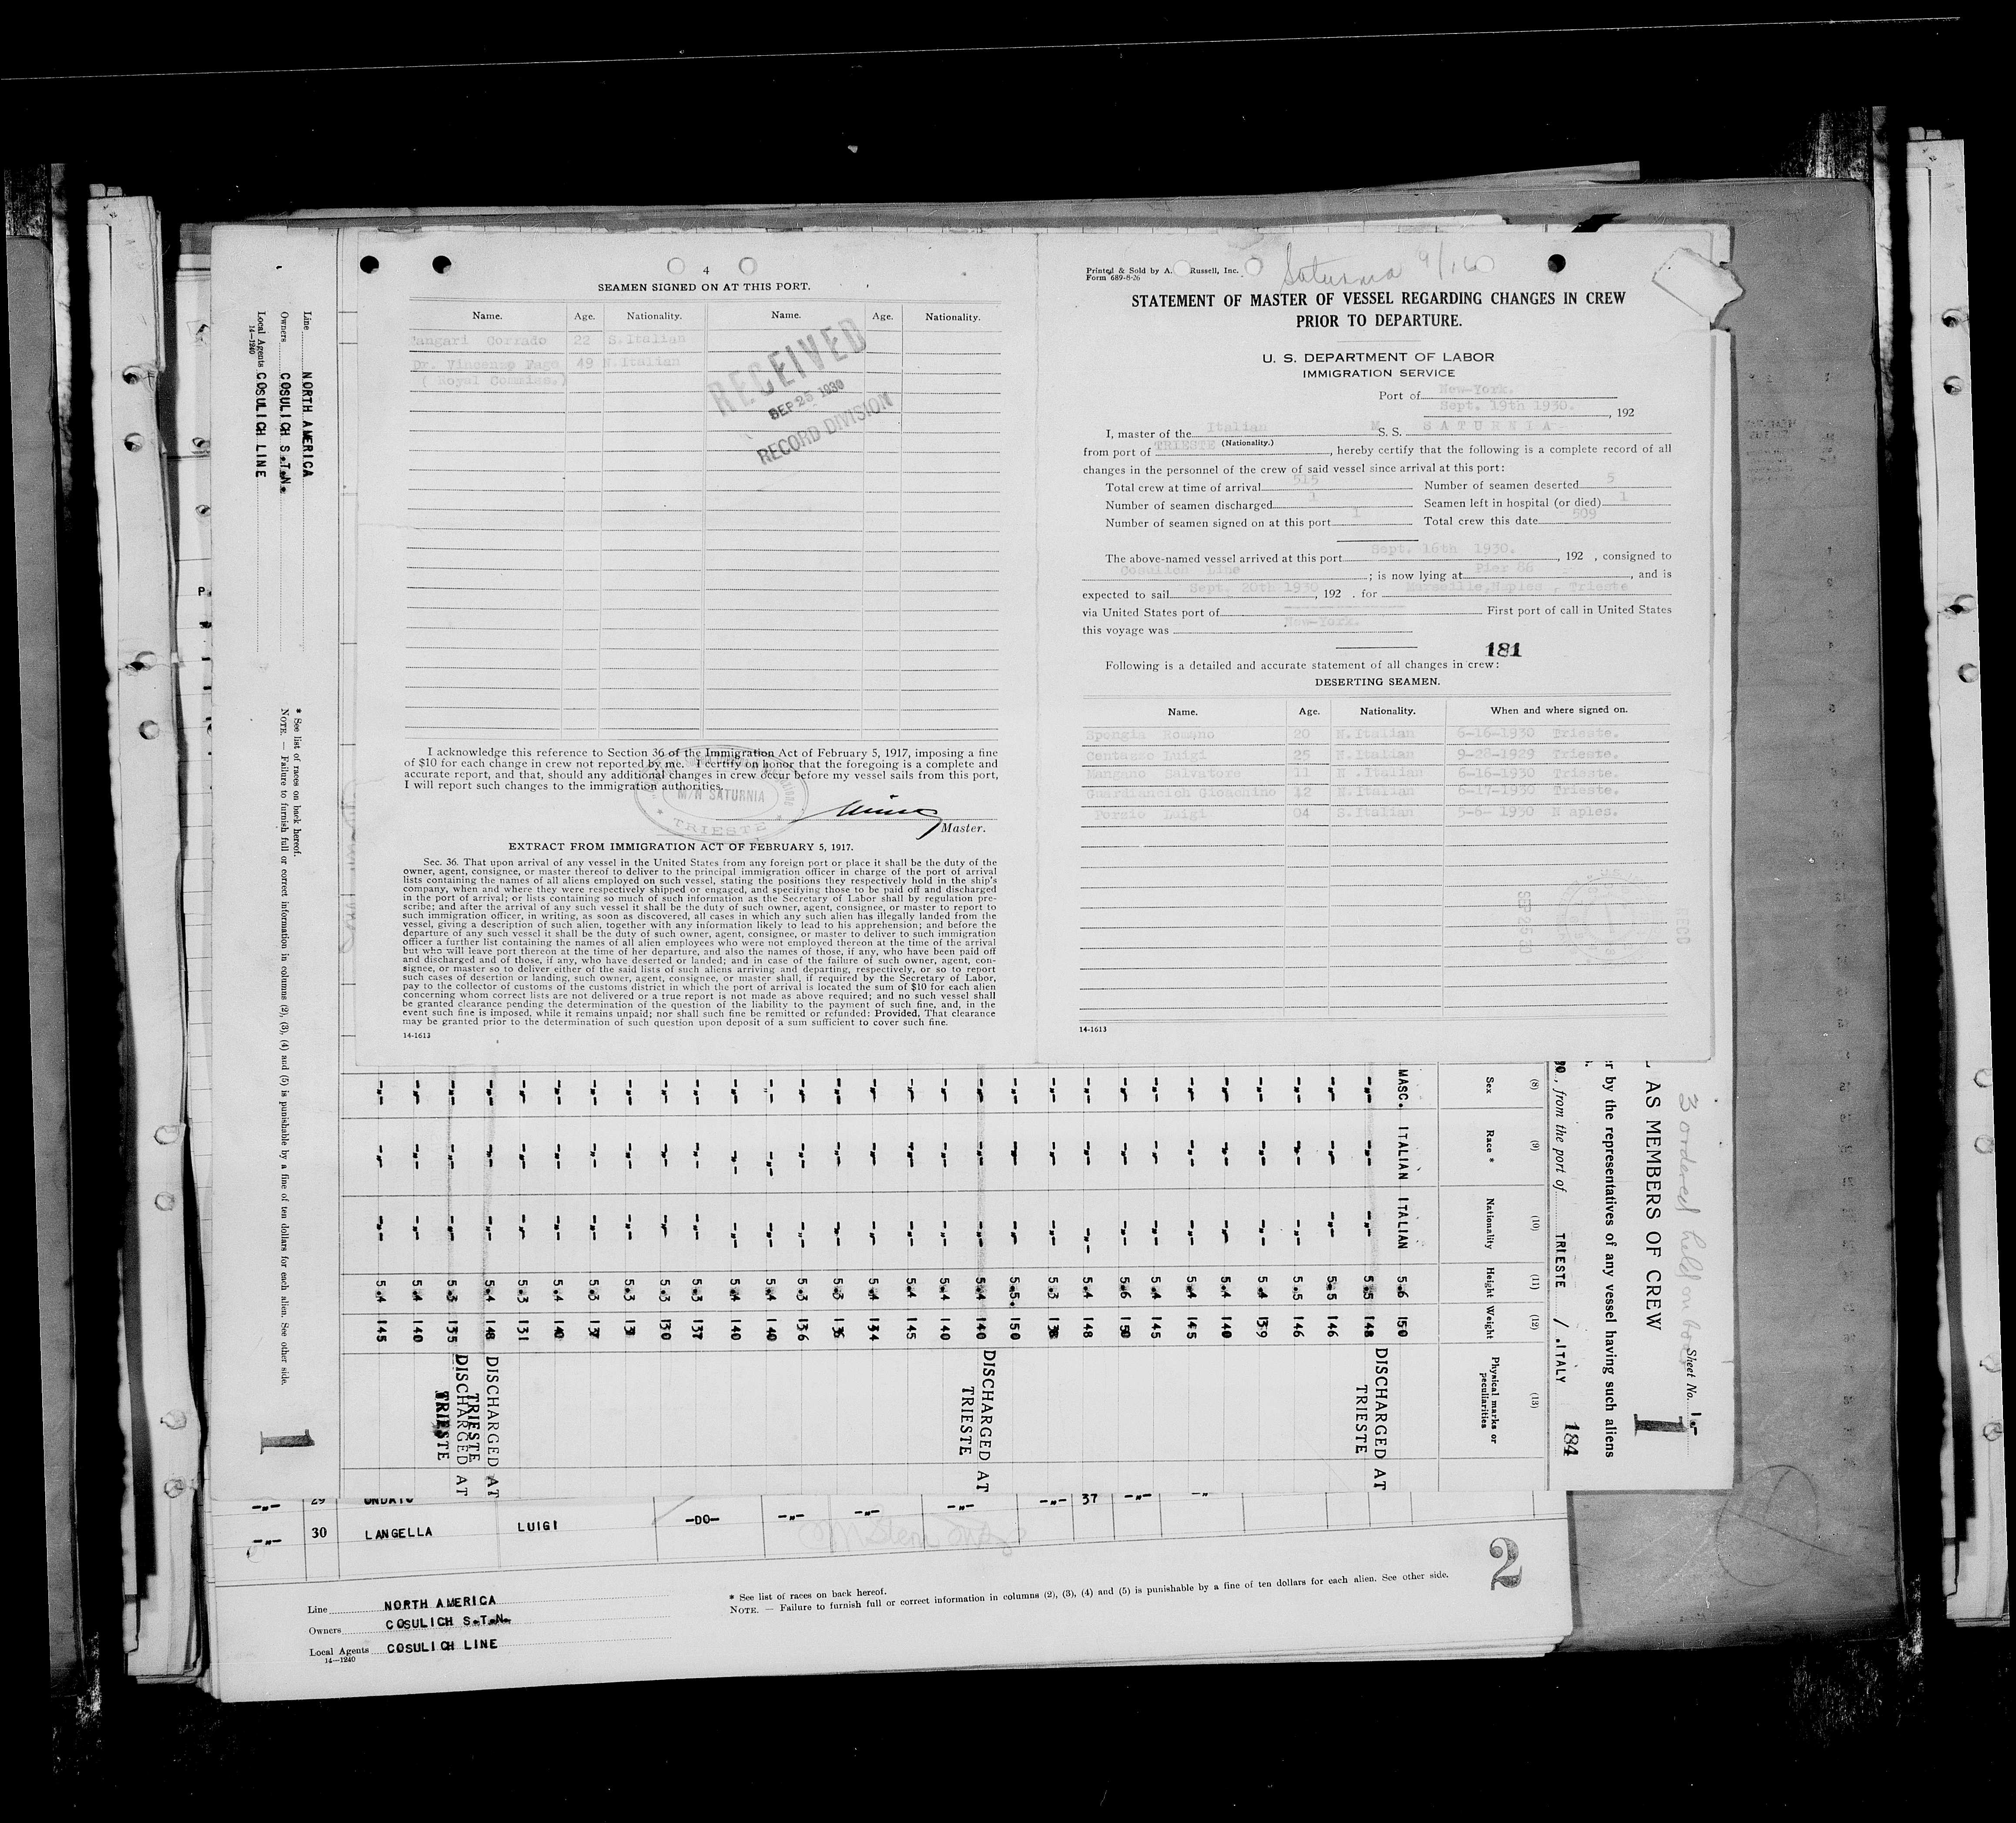 4
SEAMEN SIGNED ON AT THIS PORT.
Name. Age. Nationality. Name. Age. Nationality.
Corrado 22 S.Italian
Dr. 49 N.Italian
( Royal Commiss.)
RECEIVED
SEP 25 1930
RECORD DIVISION
I acknowledge this reference to Section 36 of the Immigration Act of February 5, 1917, imposing a fine
of $10 for each change in crew not reported by me. I certify on honor that the foregoing is a complete and
accurate report, and that, should any additional changes in crew occur before my vessel sails from this port,
I will report such changes to the immigration authorities.
M/N SATURNIA
TRIESTE
Master.
EXTRACT FROM IMMIGRATION ACT OF FEBRUARY 5, 1917.
Sec. 36. That upon arrival of any vessel in the United States from any foreign port or place it shall be the duty of the
owner, agent, consignee, or master thereof to deliver to the principal immigration officer in charge of the port of arrival
lists containing the names of all aliens employed on such vessel, stating the positions they respectively hold in the ship's
company, when and where they were respectively shipped or engaged, and specifying those to be paid off and discharged
in the port of arrival; or lists containing so much of such information as the Secretary of Labor shall by regulation pre-
scribe; and after the arrival of any such vessel it shall be the duty of such owner, agent, consignee, or master to report to
such immigration officer, in writing, as soon as discovered, all cases in which any such alien has illegally landed from the
vessel, giving a description of such alien, together with any information likely to lead to his apprehension; and before the
departure of any such vessel it shall be the duty of such owner, agent, consignee, or master to deliver to such immigration
officer a further list containing the names of all alien employees who were not employed thereon at the time of the arrival
but who will leave port thereon at the time of her departure, and also the names of those, if any, who have been paid off
and discharged and of those, if any, who have deserted or landed; and in case of the failure of such owner, agent, con-
signee, or master so to deliver either of the said lists of such aliens arriving and departing, respectively, or so to report
such cases of desertion or landing, such owner, agent, consignee, or master shall, if required by the Secretary of Labor,
pay to the collector of customs of the customs district in which the port of arrival is located the sum of $10 for each alien
concerning whom correct lists are not delivered or a true report is not made as above required; and no such vessel shall
be granted clearance pending the determination of the question of the liability to the payment of such fine, and, in the
event such fine is imposed, while it remains unpaid; nor shall such fine be remitted or refunded: Provided, That clearance
may be granted prior to the determination of such question upon deposit of a sum sufficient to cover such fine.
14-1613
Printed & Sold by A. Russell, Inc.
Form 689-8-26
Saturnia 9/16
STATEMENT OF MASTER OF VESSEL REGARDING CHANGES IN CREW
PRIOR TO DEPARTURE.
U. S. DEPARTMENT OF LABOR
IMMIGRATION SERVICE
Port of New-York.
Sept. 19th 1930. , 192
I, master of the Italian M S. S. SATURNIA
(Nationality.)
from port of TRIESTE , hereby certify that the following is a complete record of all
changes in the personnel of the crew of said vessel since arrival at this port:
Total crew at time of arrival 515 Number of seamen deserted 5
Number of seamen discharged 1 Seamen left in hospital (or died) 1
Number of seamen signed on at this port 1 Total crew this date 509
The above-named vessel arrived at this port Sept. 16th 1930. , 192 , consigned to
Cosulich Line ; is now lying at Pier 86 , and is
expected to sail Sept. 20th 1930 , 192 . for Marseille,Naples , Trieste
via United States port of First port of call in United States
this voyage was New-York.
181
Following is a detailed and accurate statement of all changes in crew:
DESERTING SEAMEN.
Name. Age. Nationality. When and where signed on.
Spongia Romano 20 N.Italian 6-16-1930 Trieste.
Centazzo Luigi 25 N.Italian 9-28-1929 Trieste.
Mangano Salvatore 11 N .Italian 6-16-1930 Trieste.
Gioachino 12 N.Italian 6-17-1930 Trieste.
Porzio Luigi 04 S.Italian 5-6- 1930 N aples.
SEP 26 30
RECD
14-1613
Line NORTH AMERICA
Owners COSULICH S.T.N.
Local Agents COSULICH LINE
14—1240
* See list of races on back hereof.
NOTE. — Failure to furnish full or correct information in columns (2), (3), (4) and (5) is punishable by a fine of ten dollars for each alien. See other side.
1
3 ordered held on board
Sheet No. 1.-
AS MEMBERS OF CREW
1
r by the representatives of any vessel having such aliens
30 , from the port of TRIESTE / .ITALY
184
(8) (9) (10) (11) (12) (13)
Sex Race * Nationality Height Weight Physical marks or peculiarities
MASC. ITALIAN ITALIAN 5.6 150
-"- -"- -"- 5.5 148 DISCHARGED AT TRIESTE
-"- -"- -"- 5.5 146
-"- -"- -"- 5.5 146
-"- -"- -"- 5.4 139
-"- -"- -"- 5.4 140
-"- -"- -"- 5.4 145
-"- -"- -"- 5.4 145
-"- -"- -"- 5.6 150
-"- -"- -"- 5.4 148
-"- -"- -"- 5.3 138
-"- -"- -"- 5.5. 150
-"- -"- -"- 5.4 140 DISCHARGED AT TRIESTE
-"- -"- -"- 5.4 140
-"- -"- -"- 5.4 145
-"- -"- -"- 5.4 134
-"- -"- -"- 5.3 136
-"- -"- -"- 5.3 136
-"- -"- -"- 5.4 140
-"- -"- -"- 5.4 140
-"- -"- -"- 5.3 137
-"- -"- -"- 5.3 130
-"- -"- -"- 5.3 131
-"- -"- -"- 5.3 137
-"- -"- -"- 5.4 140
-"- -"- -"- 5.3 131
-"- -"- -"- 5.4 148 DISCHARGED AT TRIESTE
-"- -"- -"- 5.3 135 DISCHARGED AT TRIESTE
-"- -"- -"- 5.4 140
-"- -"- -"- 5.4 145
-"- 29 -"- -"- 37 -"- -"-
-"- 30 LANGELLA LUIGI -DO- -"- -"-
2
Line NORTH AMERICA
Owners COSULICH S.T.N.
Local Agents COSULICH LINE
14—1240
* See list of races on back hereof.
NOTE. — Failure to furnish full or correct information in columns (2), (3), (4) and (5) is punishable by a fine of ten dollars for each alien. See other side.